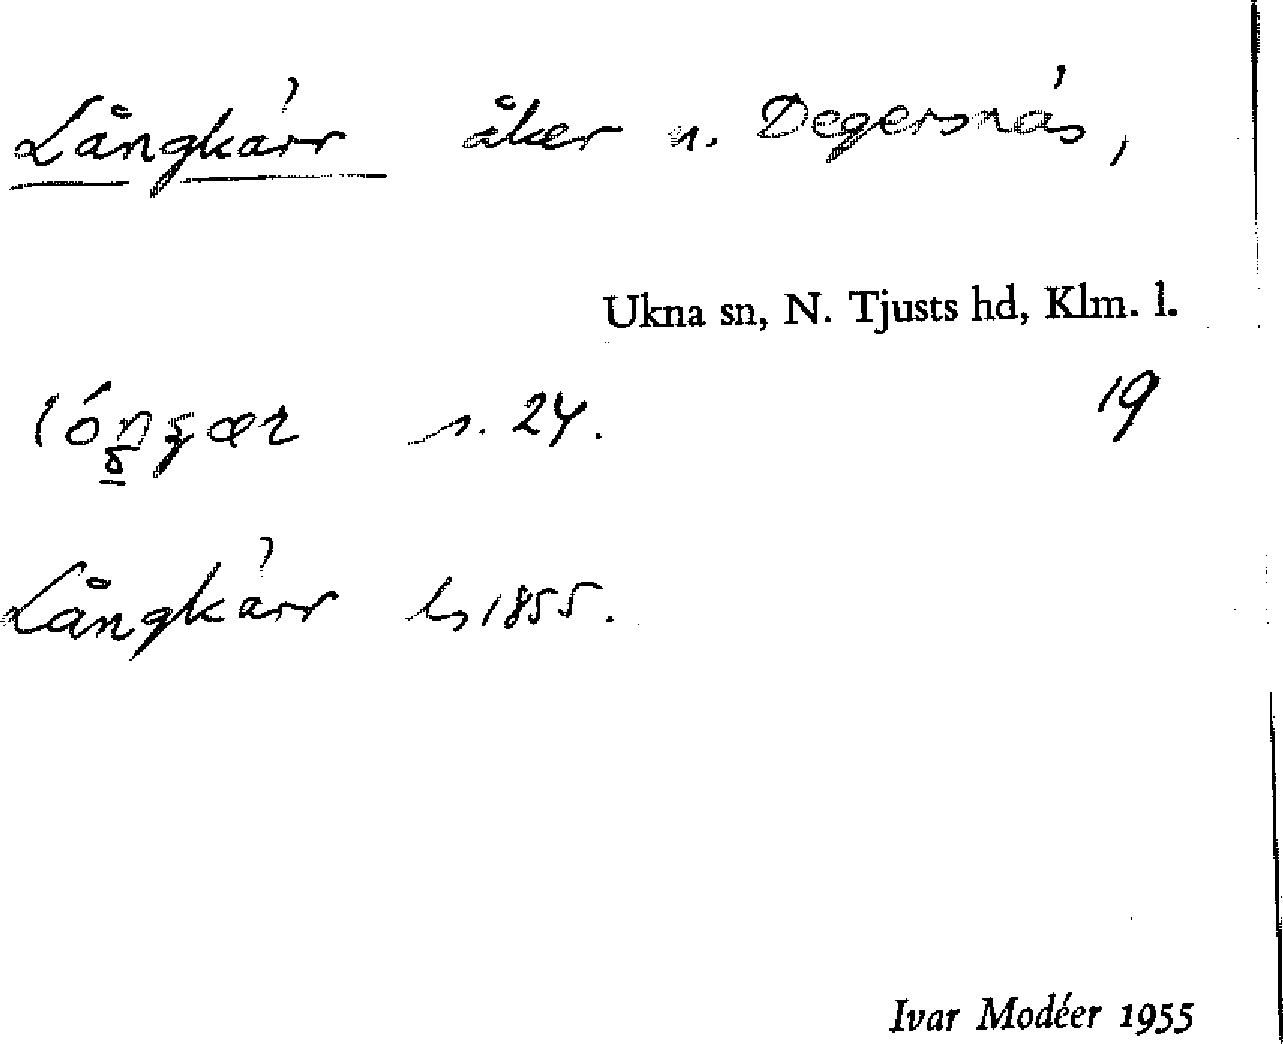 Långkärr åker n. Degersnäs,
Ukna sn, N. Tjusts hd, Klm. l.
s. 24. 19
Långkärr ls 1855.
Ivar Modéer 1955